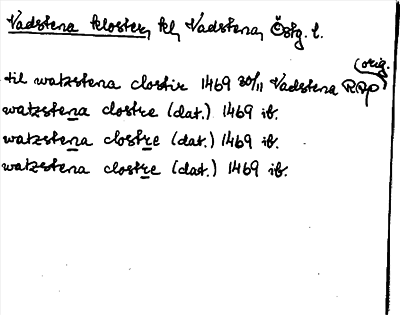 Vadstena kloster, kl, Vadstena, Östg. l.
(orig.
til watzstena clostir 1469 30/11 Vadstena RAp
watzstena clostre (dat.) 1469 ib.
watzstena clostre (dat.) 1469 ib.
watzstena clostre (dat.) 1469 ib.